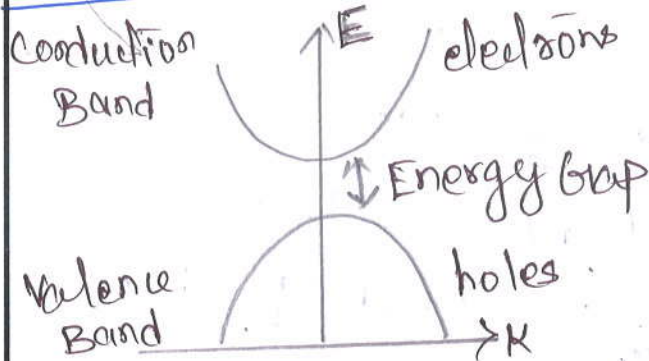 Conduction
Band
E
electrons
Energy Gap
Valence
Band
holes.
K